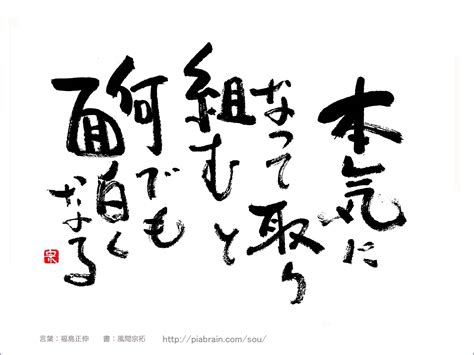 本気に
なって取り
組むと
何でも
面白くなる
言葉：福島正伸　書：風間宗拓　http://piabrain.com/sou/